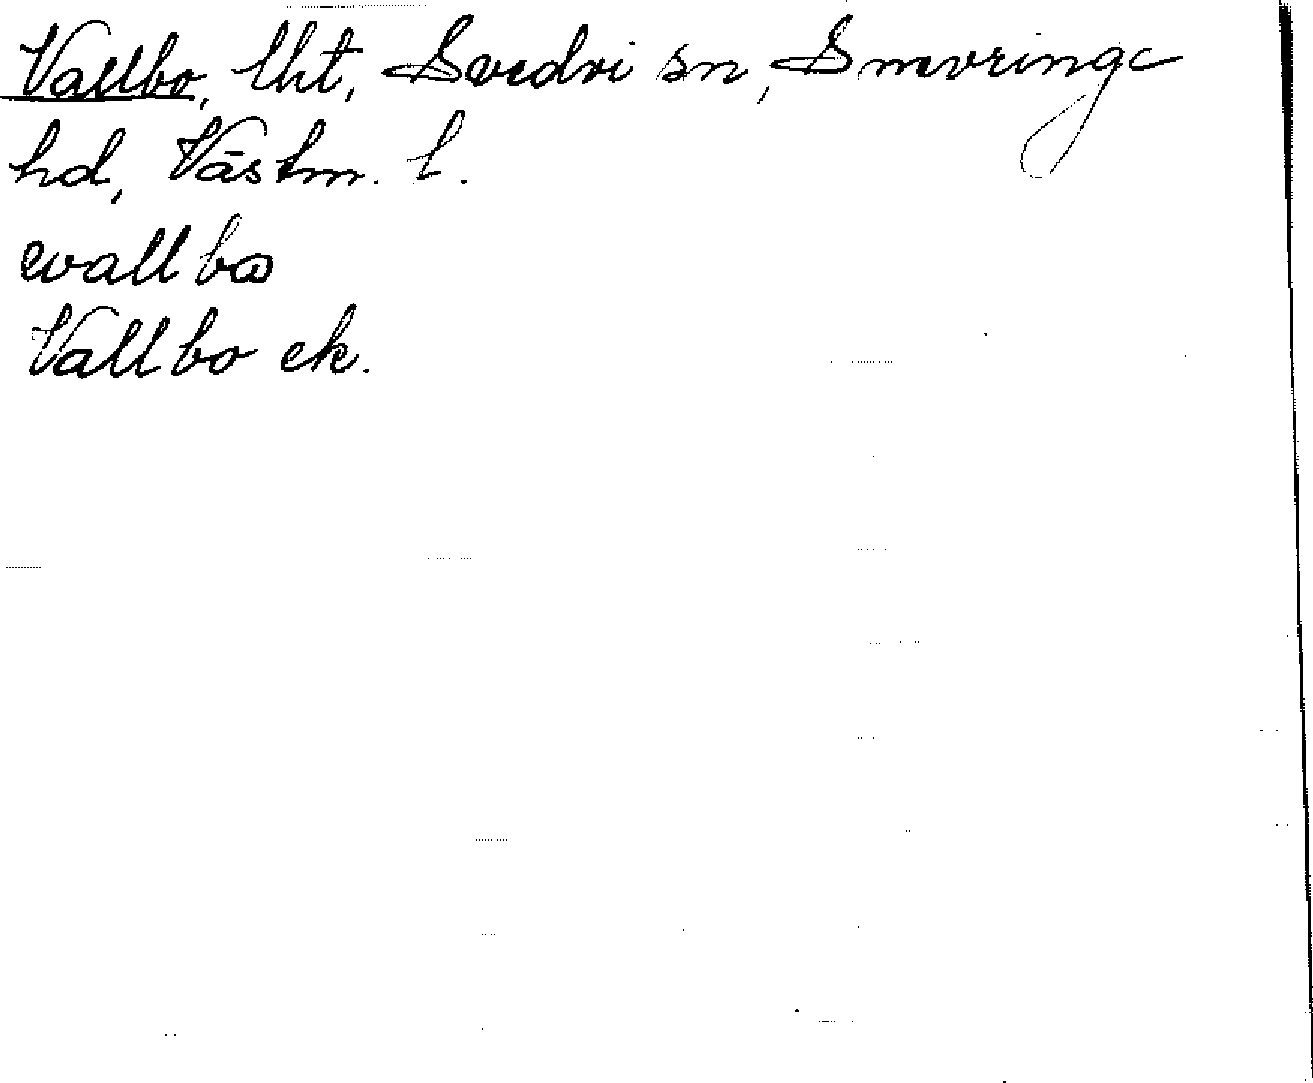 Vallbo, lht, Svedvi sn, Snevringe
hd, Västm. l.
vallbo
Vallbo ek.